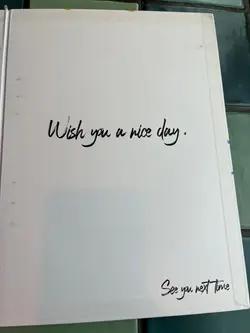 Wish you a nice day.
See you next time